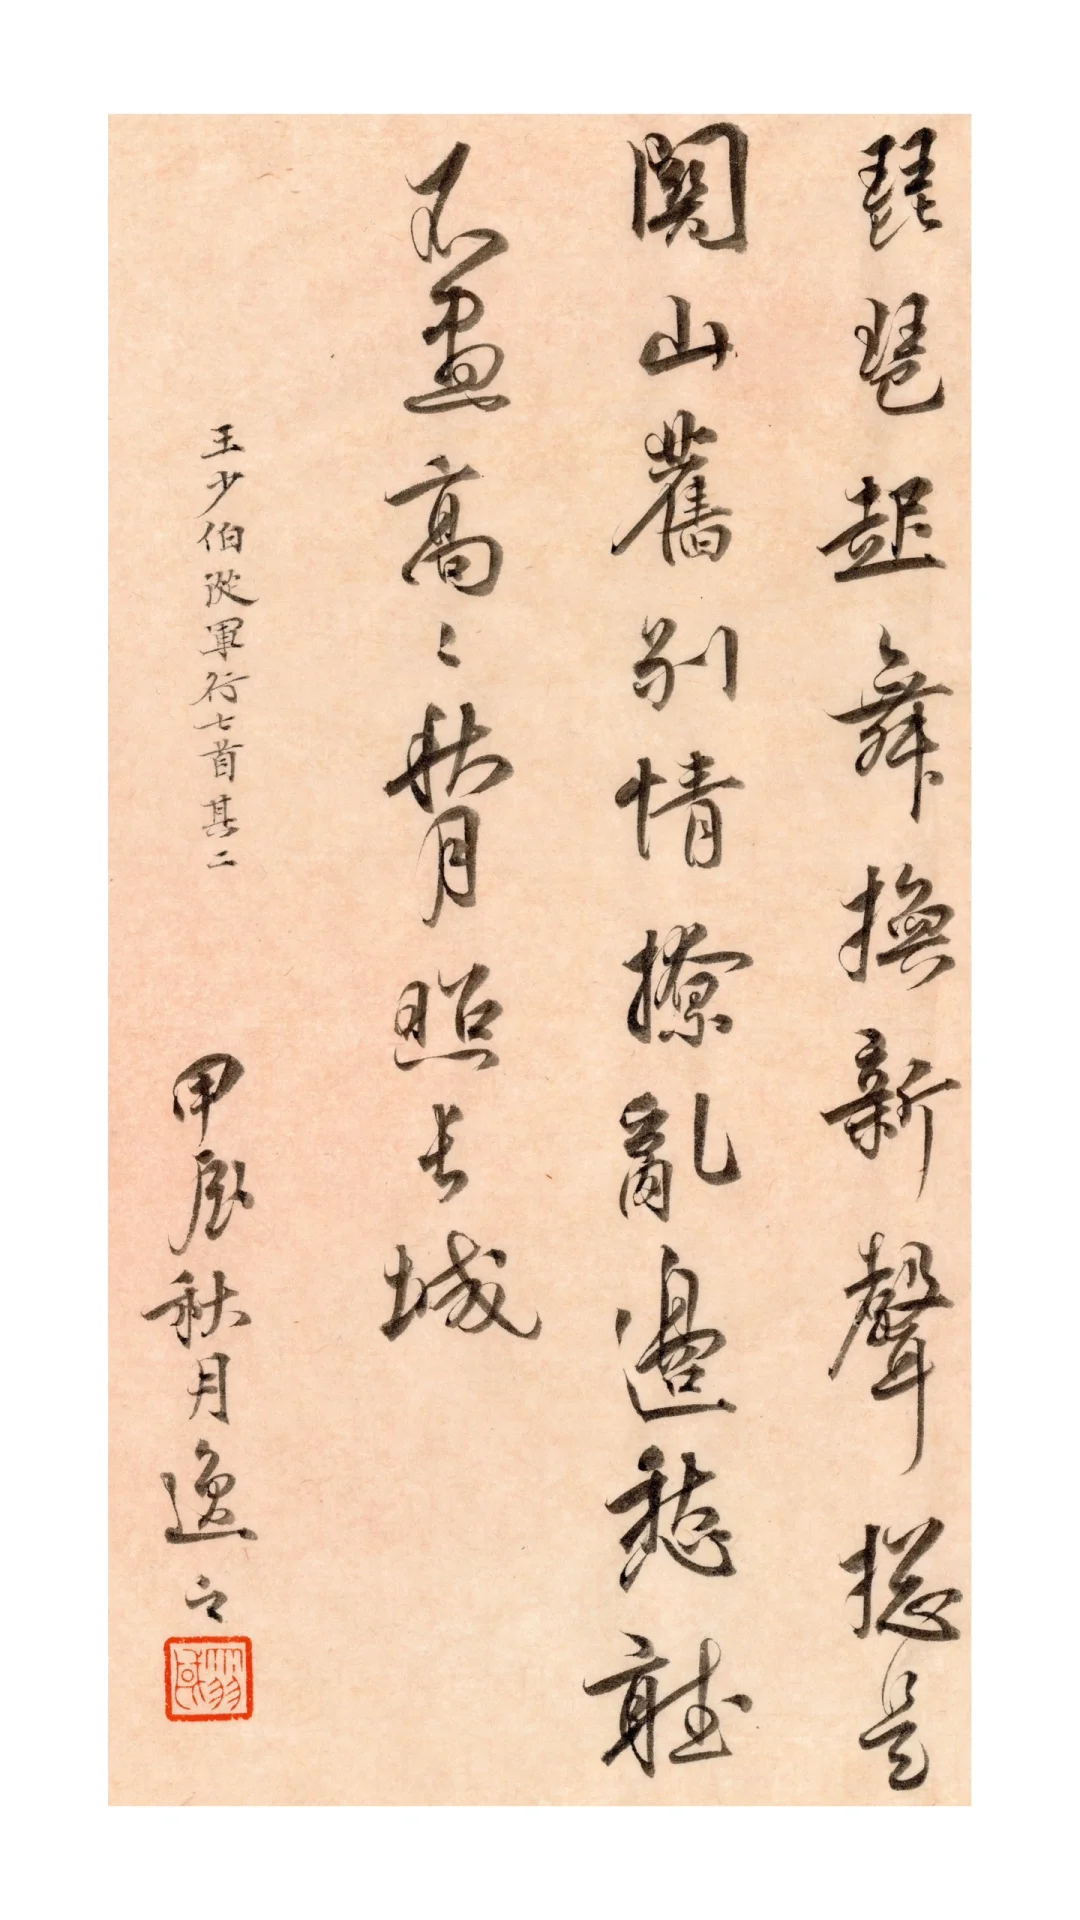 琵琶起舞換新聲摠是
關山舊別情撩亂邊愁聽
不盡高〻秋月照長城
王少伯從軍行七首其二
甲辰秋月逸之